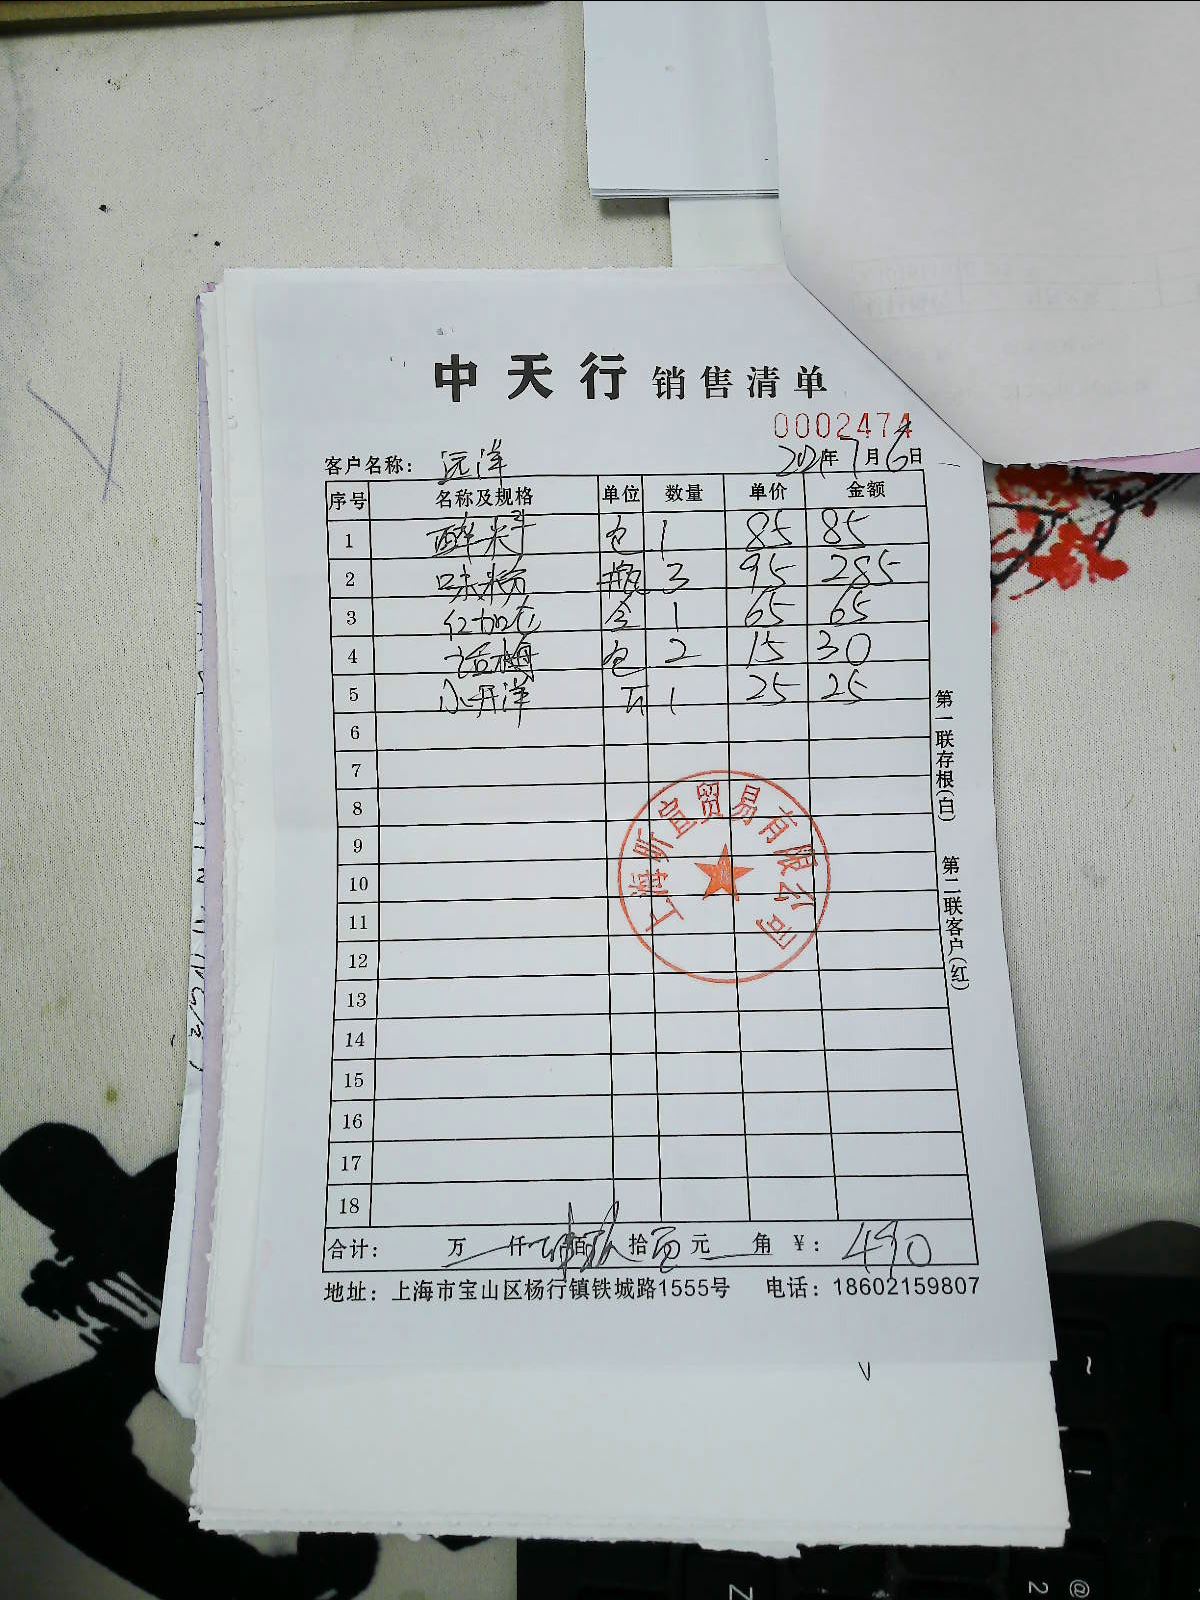 中天行 销售清单
0002474
客户名称: 远洋 2021年7月6日
序号 名称及规格 单位 数量 单价 金额
1 包 1 85 85
2 味粉 瓶 3 95 285
3 红加仑 盒 1 65 65
4 话梅 包 2 15 30
5 1 25 25
6
7
8
9
10
11
12
13
14
15
16
17
18
上海昕宣贸易有限公司
合计: 万 仟 肆百玖拾 元 角 ¥: 490
地址: 上海市宝山区杨行镇铁城路1555号 电话: 18602159807
第一联存根(白) 第二联客户(红)